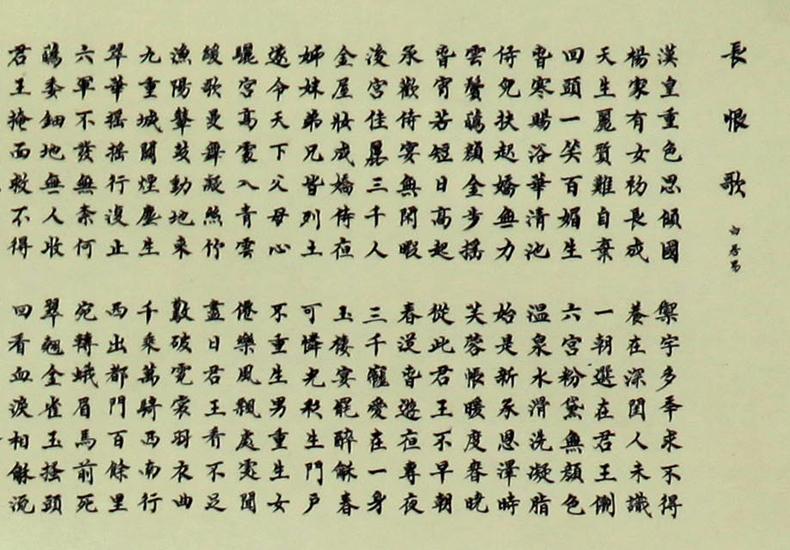 長恨歌
白居易
漢皇重色思傾國
禦宇多年求不得
楊家有女初長成
養在深閨人未識
天生麗質難自棄
一朝選在君王側
回頭一笑百媚生
六宮粉黛無顏色
春寒賜浴華清池
溫泉水滑洗凝脂
侍兒扶起嬌無力
始是新承恩澤時
雲鬢蘤顏金步搖
芙蓉帳暖度春曉
春宵苦短日高起
從此君王不早朝
承歡侍宴無閑暇
春從春遊夜專夜
後宮佳麗三千人
三千寵愛在一身
金屋妝成嬌侍夜
玉樓宴罷醉龢春
姊妹弟兄皆列土
可憐光彩生門戶
遂令天下父母心
不重生男重生女
驪宮高處入青雲
僊樂風飄處處聞
緩歌曼舞凝絲竹
盡日君王看不足
漁陽鼙鼓動地來
驚破霓裳羽衣曲
九重城闕煙塵生
千乘萬騎西南行
翠華搖搖行復止
西出都門百餘里
六軍不發無奈何
宛轉蛾眉馬前死
蘤委鈿地無人收
翠翹金雀玉搔頭
君王掩面救不得
回看血淚相龢流